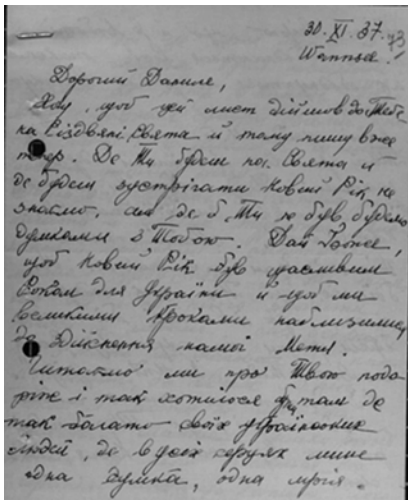 30. XI. 37.
73
Wannsee.
Дорогий Даниле,
Хочу, щоб цей лист дійшов до Тебе
на Різдвяні Свята й тому пишу вже
тепер. Де Ти будеш на Свята й
де будеш зустрічати Новий Рік не
знаємо, але де б Ти не був, будемо
думками з Тобою. Дай Боже,
щоб Новий Рік був щасливим
Роком для України й щоб ми
великими кроками наблизились
до здійснення нашої Мети.
Читаємо ми про Твою подо
ріж і так хотілося б там де
так багато своїх українських
людей, де в усіх серцях лише
одна думка, одна мрія.